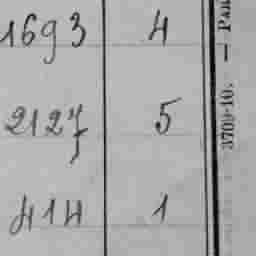 1693 4
2127 5
414 1
3709-10. — Рап